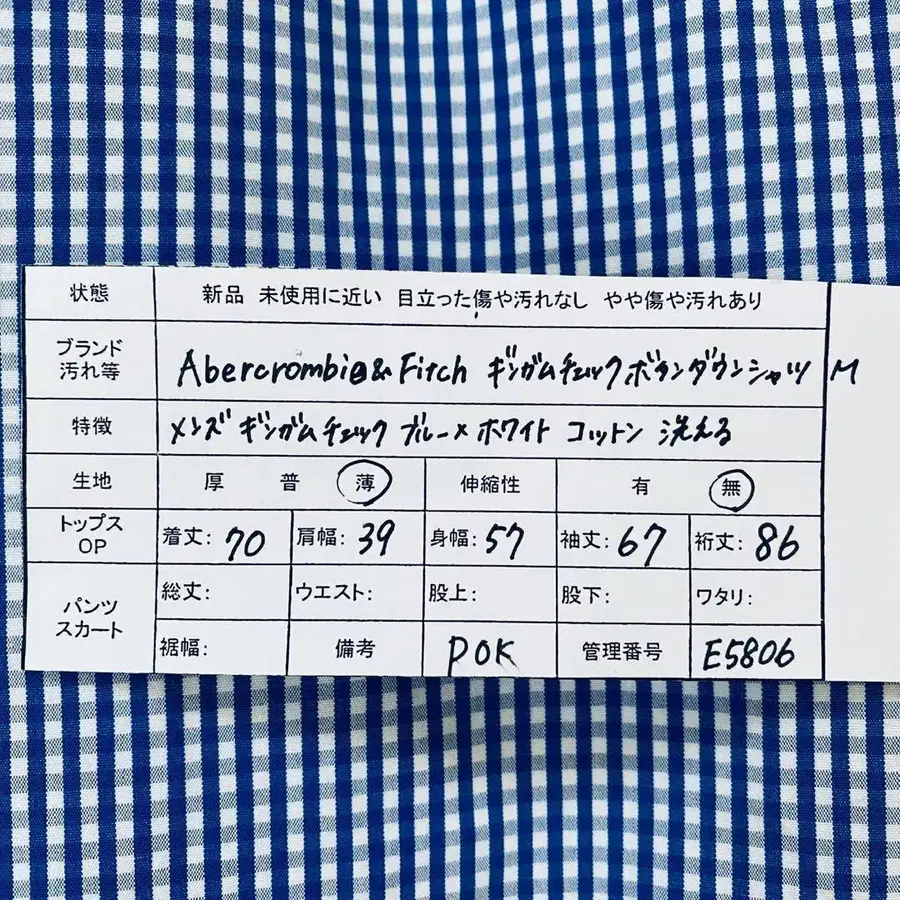 状態 新品 未使用に近い 目立った傷や汚れなし やや傷や汚れあり
ブランド
汚れ等 Abercrombie&Fitch ギンガムチェックボタンダウンシャツ M
特徴 メンズ ギンガムチェック ブルー×ホワイト コットン 洗える
生地 厚 普 薄 伸縮性 有 無
トップス
OP 着丈: 70 肩幅: 39 身幅: 57 袖丈: 67 裄丈: 86
パンツ
スカート 総丈: ウエスト: 股上: 股下: ワタリ:
裾幅: 備考 POK 管理番号 E5806